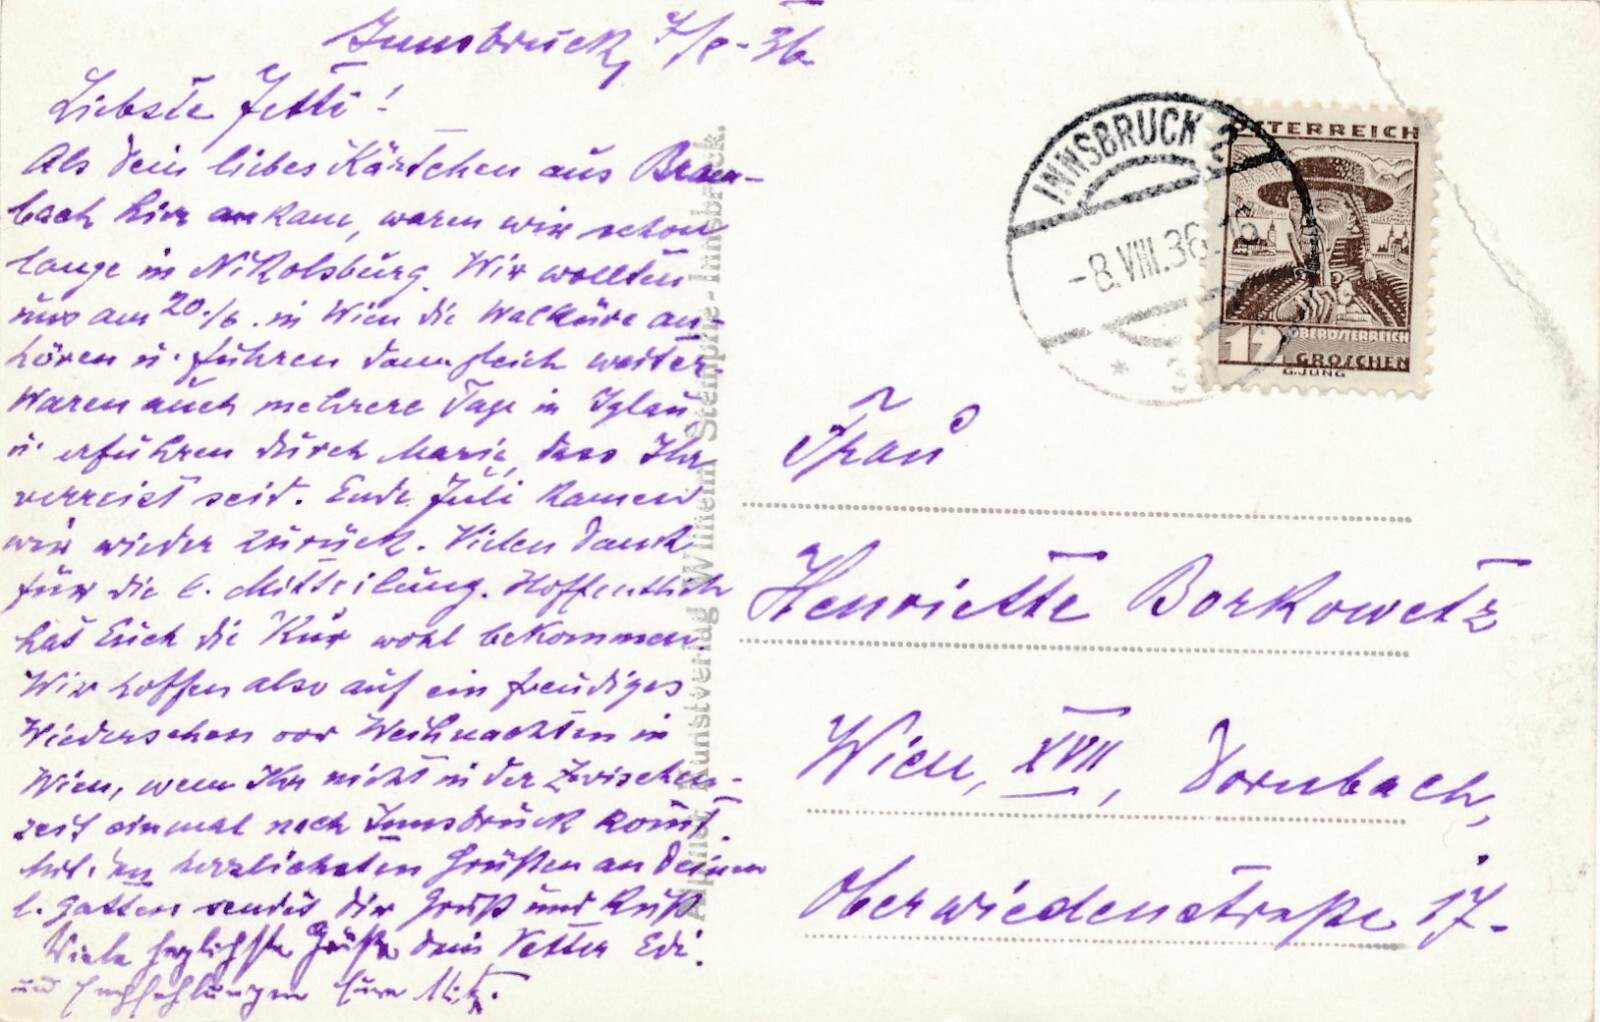 Innsbruck, 7/8-36
Liebste Jetti!
Als dein liebes Kärtchen aus Bram-
bach hier ankam, waren wir schon
lange in Nikolsburg. Wir wollten
uns am 20./6. in Wien die Walküre an-
hören u. fuhren dann gleich weiter.
Waren auch mehrere Tage in Iglau
u. erfuhren durch Marie, dass Ihr
verreist seid. Ende Juli kamen
wir wieder zurück. Vielen Dank
für die l. Mitteilung. Hoffentlich
hat Euch die Kur wohl bekommen.
Wir hoffen also auf ein freudiges
Wiedersehen vor Weihnachten in
Wien, wenn Ihr nicht in der Zwischen-
zeit einmal nach Innsbruck komt.
Mit den herzlichsten Grüßen an Deinen
l. Gatten sendet dir Gruß und Kuß
dein Vetter Edi.
Viele herzlichste Grüße
und Empfehlungen Eure Mitzi.
Alpiner Kunstverlag Wilhelm Stempfle - Innsbruck.
INNSBRUCK 2
-8.VIII.36
* 3
ÖSTERREICH
OBERÖSTERREICH
12 GROSCHEN
G.JUNG
Frau
Henriette Borkowetz
Wien, XVII, Dornbach,
Oberwiedenstraße 17.